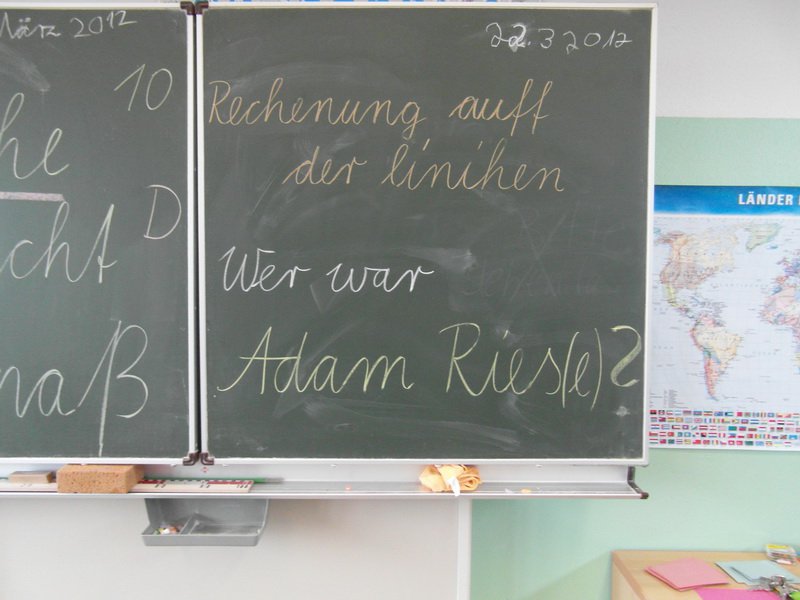 März 2012
10
he
D
cht
maß
22.3 2012
Rechenung auff
der linihen
Wer war
Adam Ries(e)?
LÄNDER